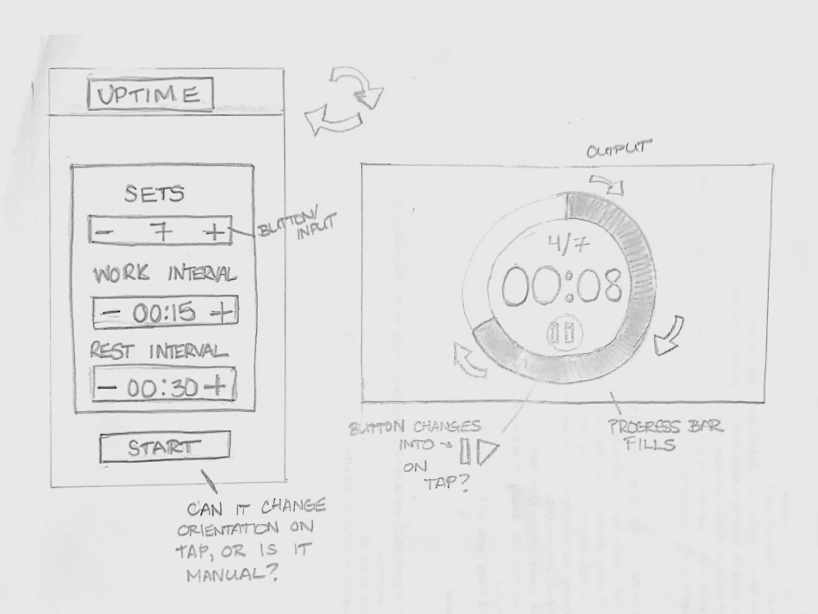 UPTIME
SETS
- 7 +
BUTTON/
INPUT
WORK INTERVAL
- 00:15 +
REST INTERVAL
- 00:30 +
START
CAN IT CHANGE
ORIENTATION ON
TAP, OR IS IT
MANUAL?
OUTPUT
4/7
00:08
BUTTON CHANGES
INTO
ON
TAP?
PROGRESS BAR
FILLS